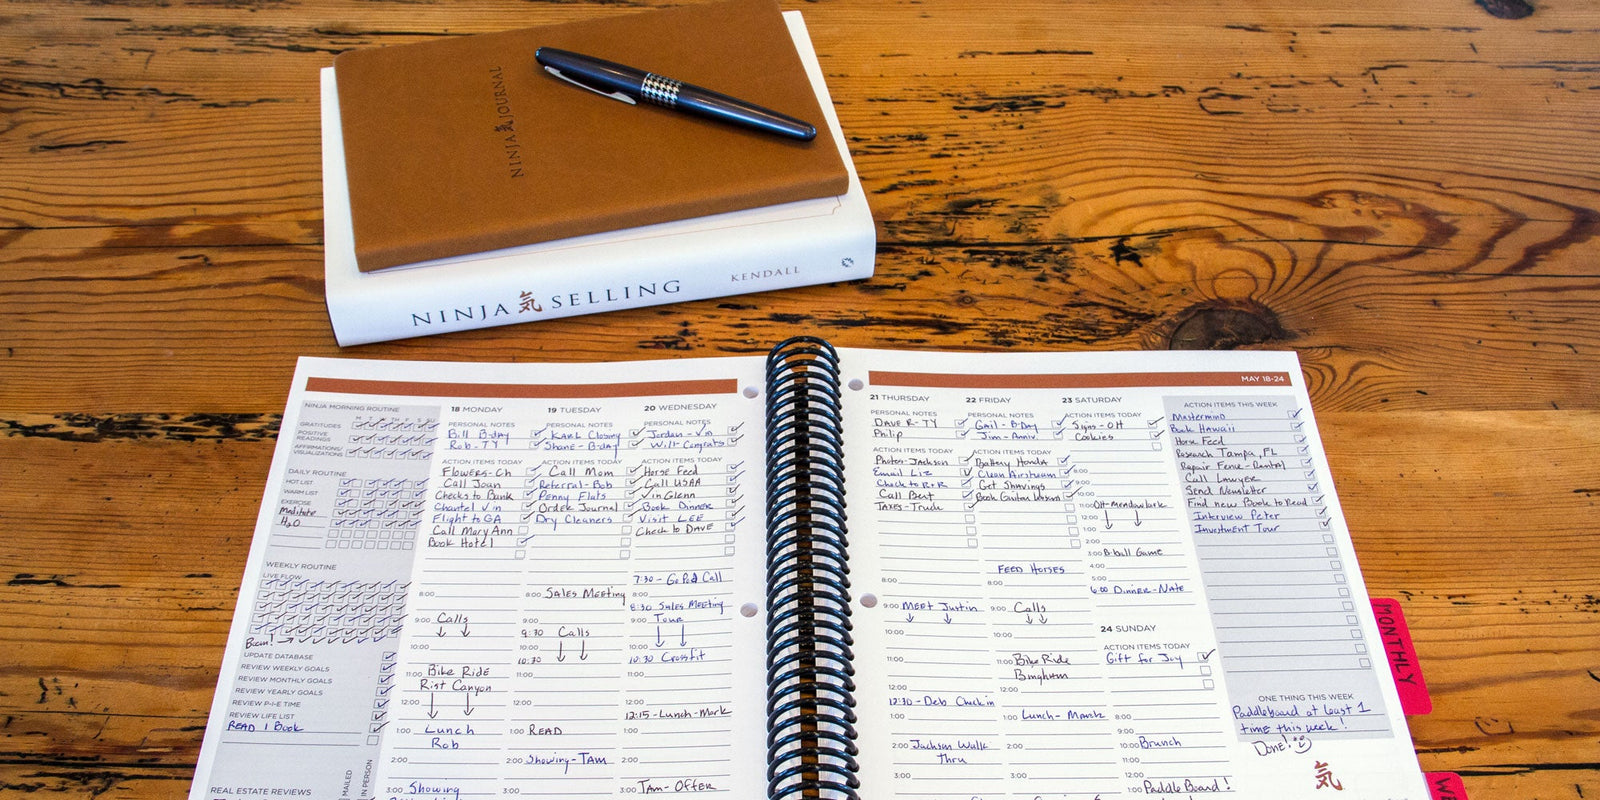 NINJA 氣 JOURNAL
NINJA 氣 SELLING KENDALL
NINJA MORNING ROUTINE
GRATITUDES
POSITIVE READINGS
AFFIRMATIONS/
VISUALIZATIONS
DAILY ROUTINE
HOT LIST
WARM LIST
EXERCISE
Meditate
H2O
WEEKLY ROUTINE
LIVE FLOW
Boom!
UPDATE DATABASE
REVIEW WEEKLY GOALS
REVIEW MONTHLY GOALS
REVIEW YEARLY GOALS
REVIEW P-I-E TIME
REVIEW LIFE LIST
READ 1 Book
REAL ESTATE REVIEWS
MAILED
IN PERSON
18 MONDAY
PERSONAL NOTES
Bill B-day
Rob - TY
ACTION ITEMS TODAY
Flowers - Ch
Call Joan
Checks to Bank
Chantel Vin
Flight to GA
Call Mary Ann
Book Hotel
8:00
9:00 Calls
10:00
11:00 Bike Ride
Rist Canyon
12:00
1:00 Lunch
Rob
2:00
3:00 Showing
19 TUESDAY
PERSONAL NOTES
Karl Closing
Shane - B-day
ACTION ITEMS TODAY
Call Mom
Referral - Bob
Penny Flats
Order Journal
Dry Cleaners
8:00 Sales Meeting
9:00
9:30 Calls
10:00
10:30
11:00
12:00
1:00 READ
2:00 Showing - TAM
3:00
20 WEDNESDAY
PERSONAL NOTES
Jordan - Vin
Will - Congrats
ACTION ITEMS TODAY
Horse Feed
Call USAA
Vin Glenn
Book Dinner
Visit LEE
Check to DAVE
7:30 - GoPod Call
8:00
8:30 Sales Meeting
9:00 Tour
10:00
10:30 Crossfit
11:00
12:00
12:15 - Lunch - Mark
1:00
2:00
3:00 Tam - Offer
MAY 18-24
21 THURSDAY
PERSONAL NOTES
Dave R - TY
Philip
ACTION ITEMS TODAY
Photos - Jackson
Email Liz
Check to R+R
Call Bert
Taxes - Truck
8:00
9:00 MEET Justin
10:00
11:00
12:00
12:30 - Deb Check in
1:00
2:00 Jackson Walk
thru
3:00
22 FRIDAY
PERSONAL NOTES
Gail - B-Day
Jim - Anniv.
ACTION ITEMS TODAY
Battery Honda
Clean Airstream
Get Shavings
Book Guitar Lesson
FEED HORSES
8:00
9:00 Calls
10:00
11:00 Bike Ride
Bingham
12:00
1:00 Lunch - March
2:00
3:00
23 SATURDAY
ACTION ITEMS TODAY
Signs - OH
Cookies
8:00
9:00
10:00
11:00 OH - Meadowlark
12:00
1:00
2:00
3:00 B-ball Game
4:00
5:00
6:00 Dinner - Nate
24 SUNDAY
ACTION ITEMS TODAY
Gift for Joy
8:00
9:00
10:00 Brunch
11:00
12:00
1:00 Paddle Board!
ACTION ITEMS THIS WEEK
Mastermind
Book Hawaii
Horse Feed
Research Tampa, FL
Repair Fence - Rental
Call Lawyer
Send Newsletter
Find new Book to Read
Interview Peter
Investment Tour
ONE THING THIS WEEK
Paddleboard at least 1
time this week!
Done!
氣
MONTHLY